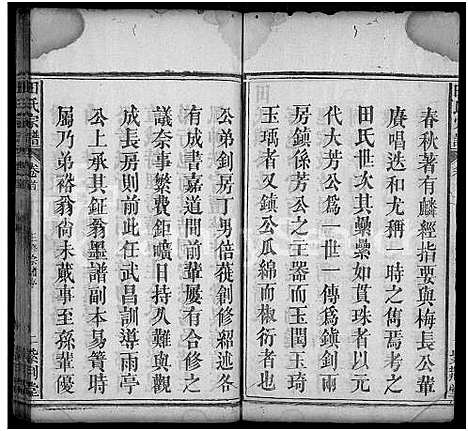 春秋著有麟經指要與梅長公輩
賡唱迭和爲一時之偉儒焉耀考
田氏世次其纍纍如貫珠者以元
代大芳公爲一世一傳爲鎮釗兩
房鎮房芳公之主器而玉閏玉琦
玉瑀者又鎮公瓜綿而椒衍者也
公弟釗房丁男倍蓰創修紹述各
有成書嘉道間前輩屢有合修之
議奈事繁費鉅曠日持久難與觀
成長房則前任武昌訓導雨亭
公上承其鉦翁墨譜副本易簀時
屬乃弟裕翁尚未蕆事至孫輩優
田氏宗譜
卷首
紫荆堂